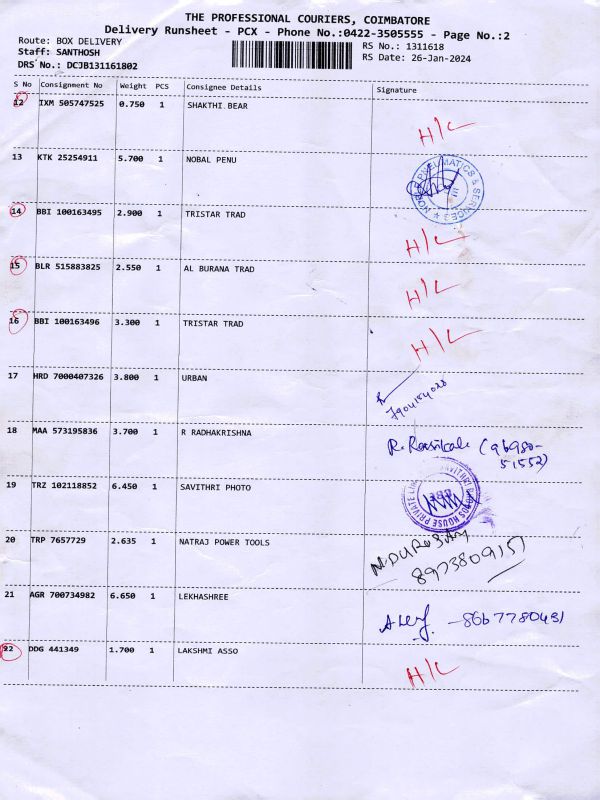 THE PROFESSIONAL COURIERS, COIMBATORE
Delivery Runsheet - PCX - Phone No.:0422-3505555 - Page No.:2
Route: BOX DELIVERY
RS No.: 1311618
Staff: SANTHOSH
RS Date: 26-Jan-2024
DRS No.: DCJB131161802
S No Consignment No Weight PCS Consignee Details Signature
12 IXM 505747525 0.750 1 SHAKTHI BEAR H/L
13 KTK 25254911 5.700 1 NOBAL PENU PNEUMATICS & SERVICES
14 BBI 100163495 2.900 1 TRISTAR TRAD H/L
15 BLR 515883825 2.550 1 AL BURANA TRAD H/L
16 BBI 100163496 3.300 1 TRISTAR TRAD H/L
17 HRD 7000407326 3.800 1 URBAN
18 MAA 573195836 3.700 1 R RADHAKRISHNA (96980-
51552)
19 TRZ 102118852 6.450 1 SAVITHRI PHOTO SAVITHRI PHOTOS HOUSE PRIVATE
20 TRP 7657729 2.635 1 NATRAJ POWER TOOLS
8973809151
21 AGR 700734982 6.650 1 LEKHASHREE - 8667780431
22 DDG 441349 1.700 1 LAKSHMI ASSO H/L